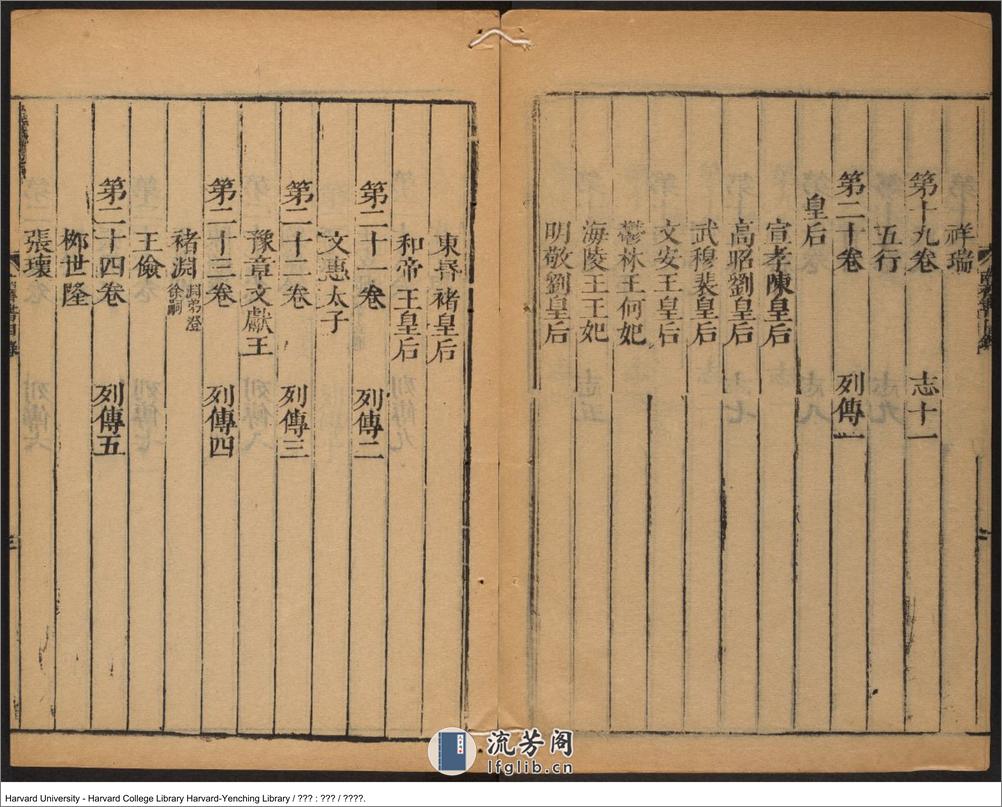 祥瑞
第十九卷　志十一
五行
第二十卷　列傳一
皇后
宣孝陳皇后
高昭劉皇后
武穆裴皇后
文安王皇后
鬱林王何妃
海陵王王妃
明敬劉皇后
東昏褚皇后
和帝王皇后
第二十一卷　列傳二
文惠太子
第二十二卷　列傳三
豫章文獻王
第二十三卷　列傳四
褚淵 淵弟澄 徐嗣
王儉
第二十四卷　列傳五
柳世隆
張瓌
流芳阁
lfglib.cn
Harvard University - Harvard College Library Harvard-Yenching Library / ??? : ??? / ????.